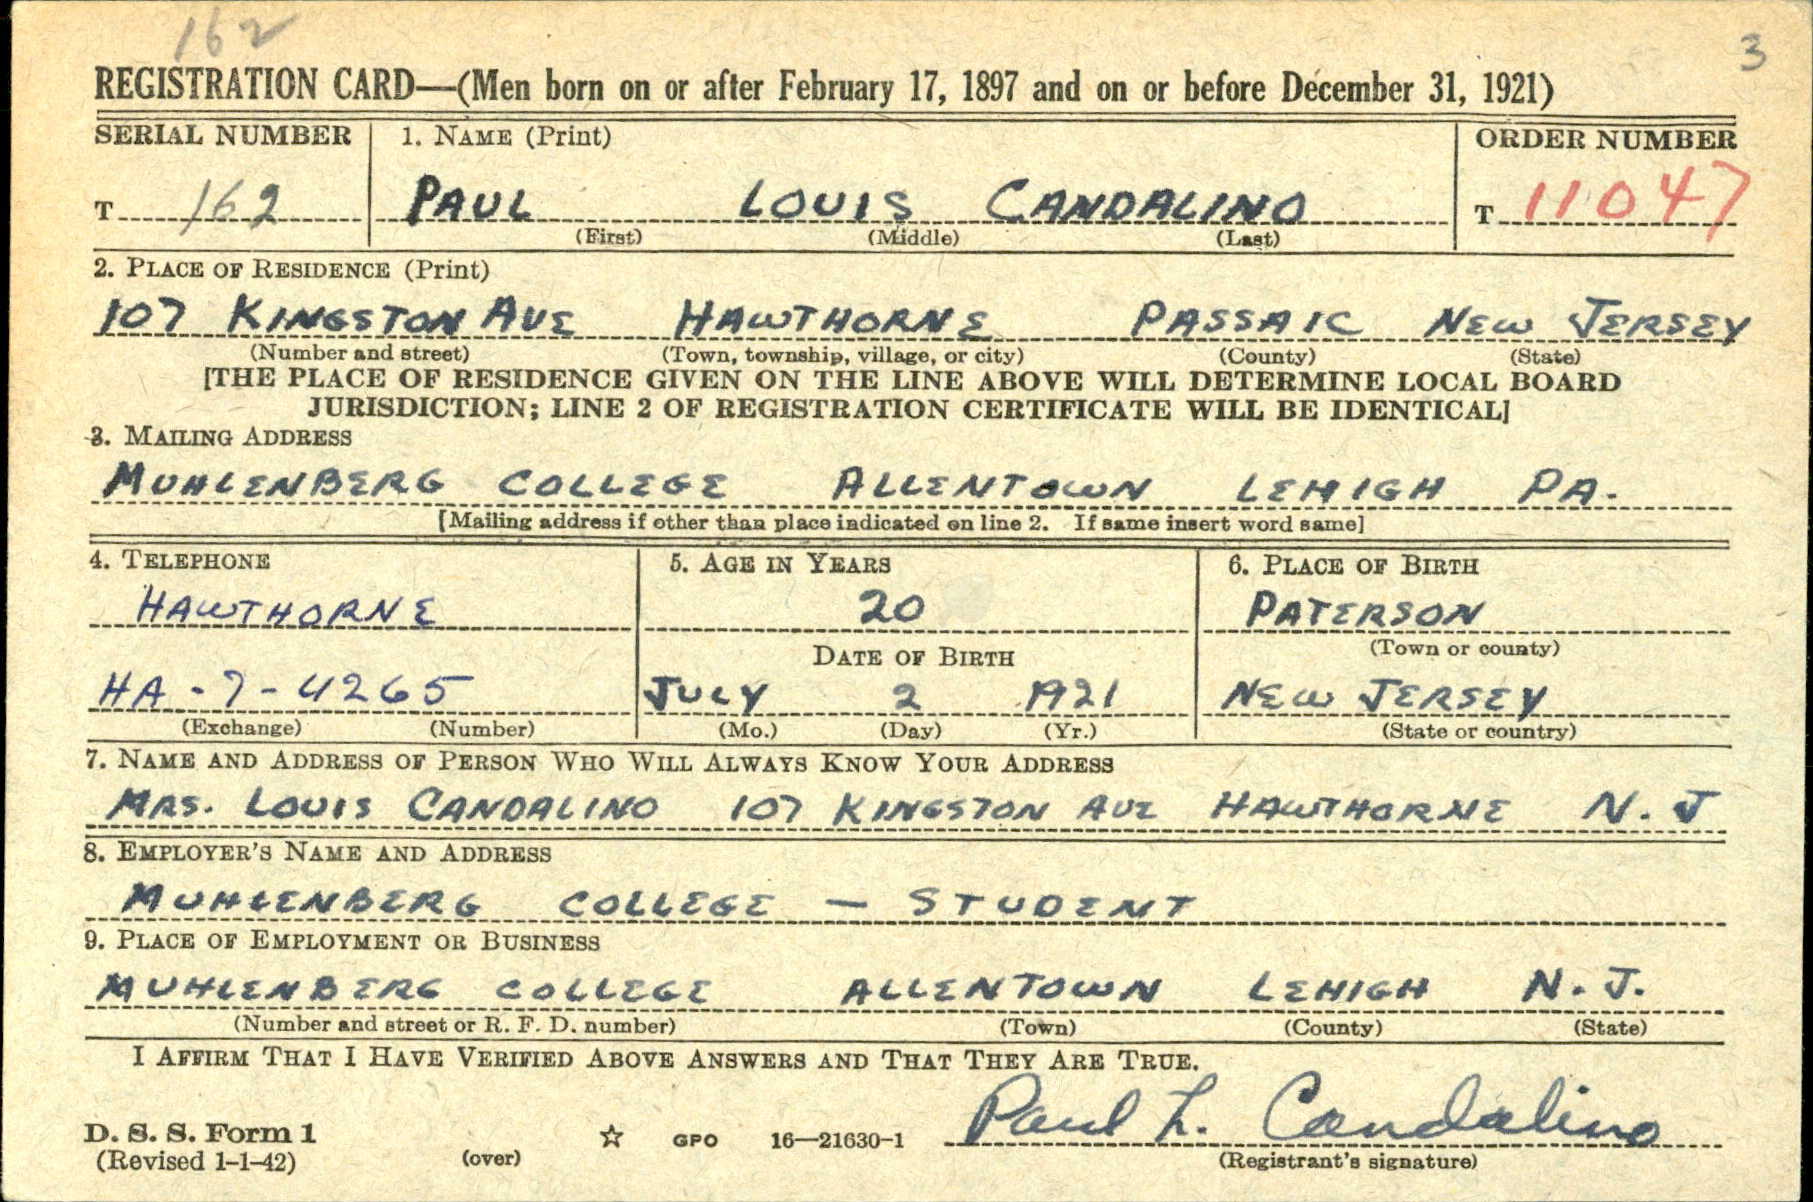 162
3
REGISTRATION CARD—(Men born on or after February 17, 1897 and on or before December 31, 1921)
SERIAL NUMBER 1. NAME (Print) ORDER NUMBER
T 162 PAUL LOUIS CANDALINO T 11047
(First) (Middle) (Last)
2. PLACE OF RESIDENCE (Print)
107 KINGSTON AVE HAWTHORNE PASSAIC NEW JERSEY
(Number and street) (Town, township, village, or city) (County) (State)
[THE PLACE OF RESIDENCE GIVEN ON THE LINE ABOVE WILL DETERMINE LOCAL BOARD
JURISDICTION; LINE 2 OF REGISTRATION CERTIFICATE WILL BE IDENTICAL]
3. MAILING ADDRESS
MUHLENBERG COLLEGE ALLENTOWN LEHIGH PA.
[Mailing address if other than place indicated on line 2. If same insert word same]
4. TELEPHONE 5. AGE IN YEARS 6. PLACE OF BIRTH
HAWTHORNE 20 PATERSON
DATE OF BIRTH (Town or county)
HA-7-4265 JULY 2 1921 NEW JERSEY
(Exchange) (Number) (Mo.) (Day) (Yr.) (State or country)
7. NAME AND ADDRESS OF PERSON WHO WILL ALWAYS KNOW YOUR ADDRESS
MRS. LOUIS CANDALINO 107 KINGSTON AVE HAWTHORNE N. J
8. EMPLOYER'S NAME AND ADDRESS
MUHLENBERG COLLEGE — STUDENT
9. PLACE OF EMPLOYMENT OR BUSINESS
MUHLENBERG COLLEGE ALLENTOWN LEHIGH N. J.
(Number and street or R. F. D. number) (Town) (County) (State)
I AFFIRM THAT I HAVE VERIFIED ABOVE ANSWERS AND THAT THEY ARE TRUE.
Paul L. Candalino
D. S. S. Form 1 ☆ GPO 16—21630-1
(Revised 1-1-42) (over) (Registrant's signature)